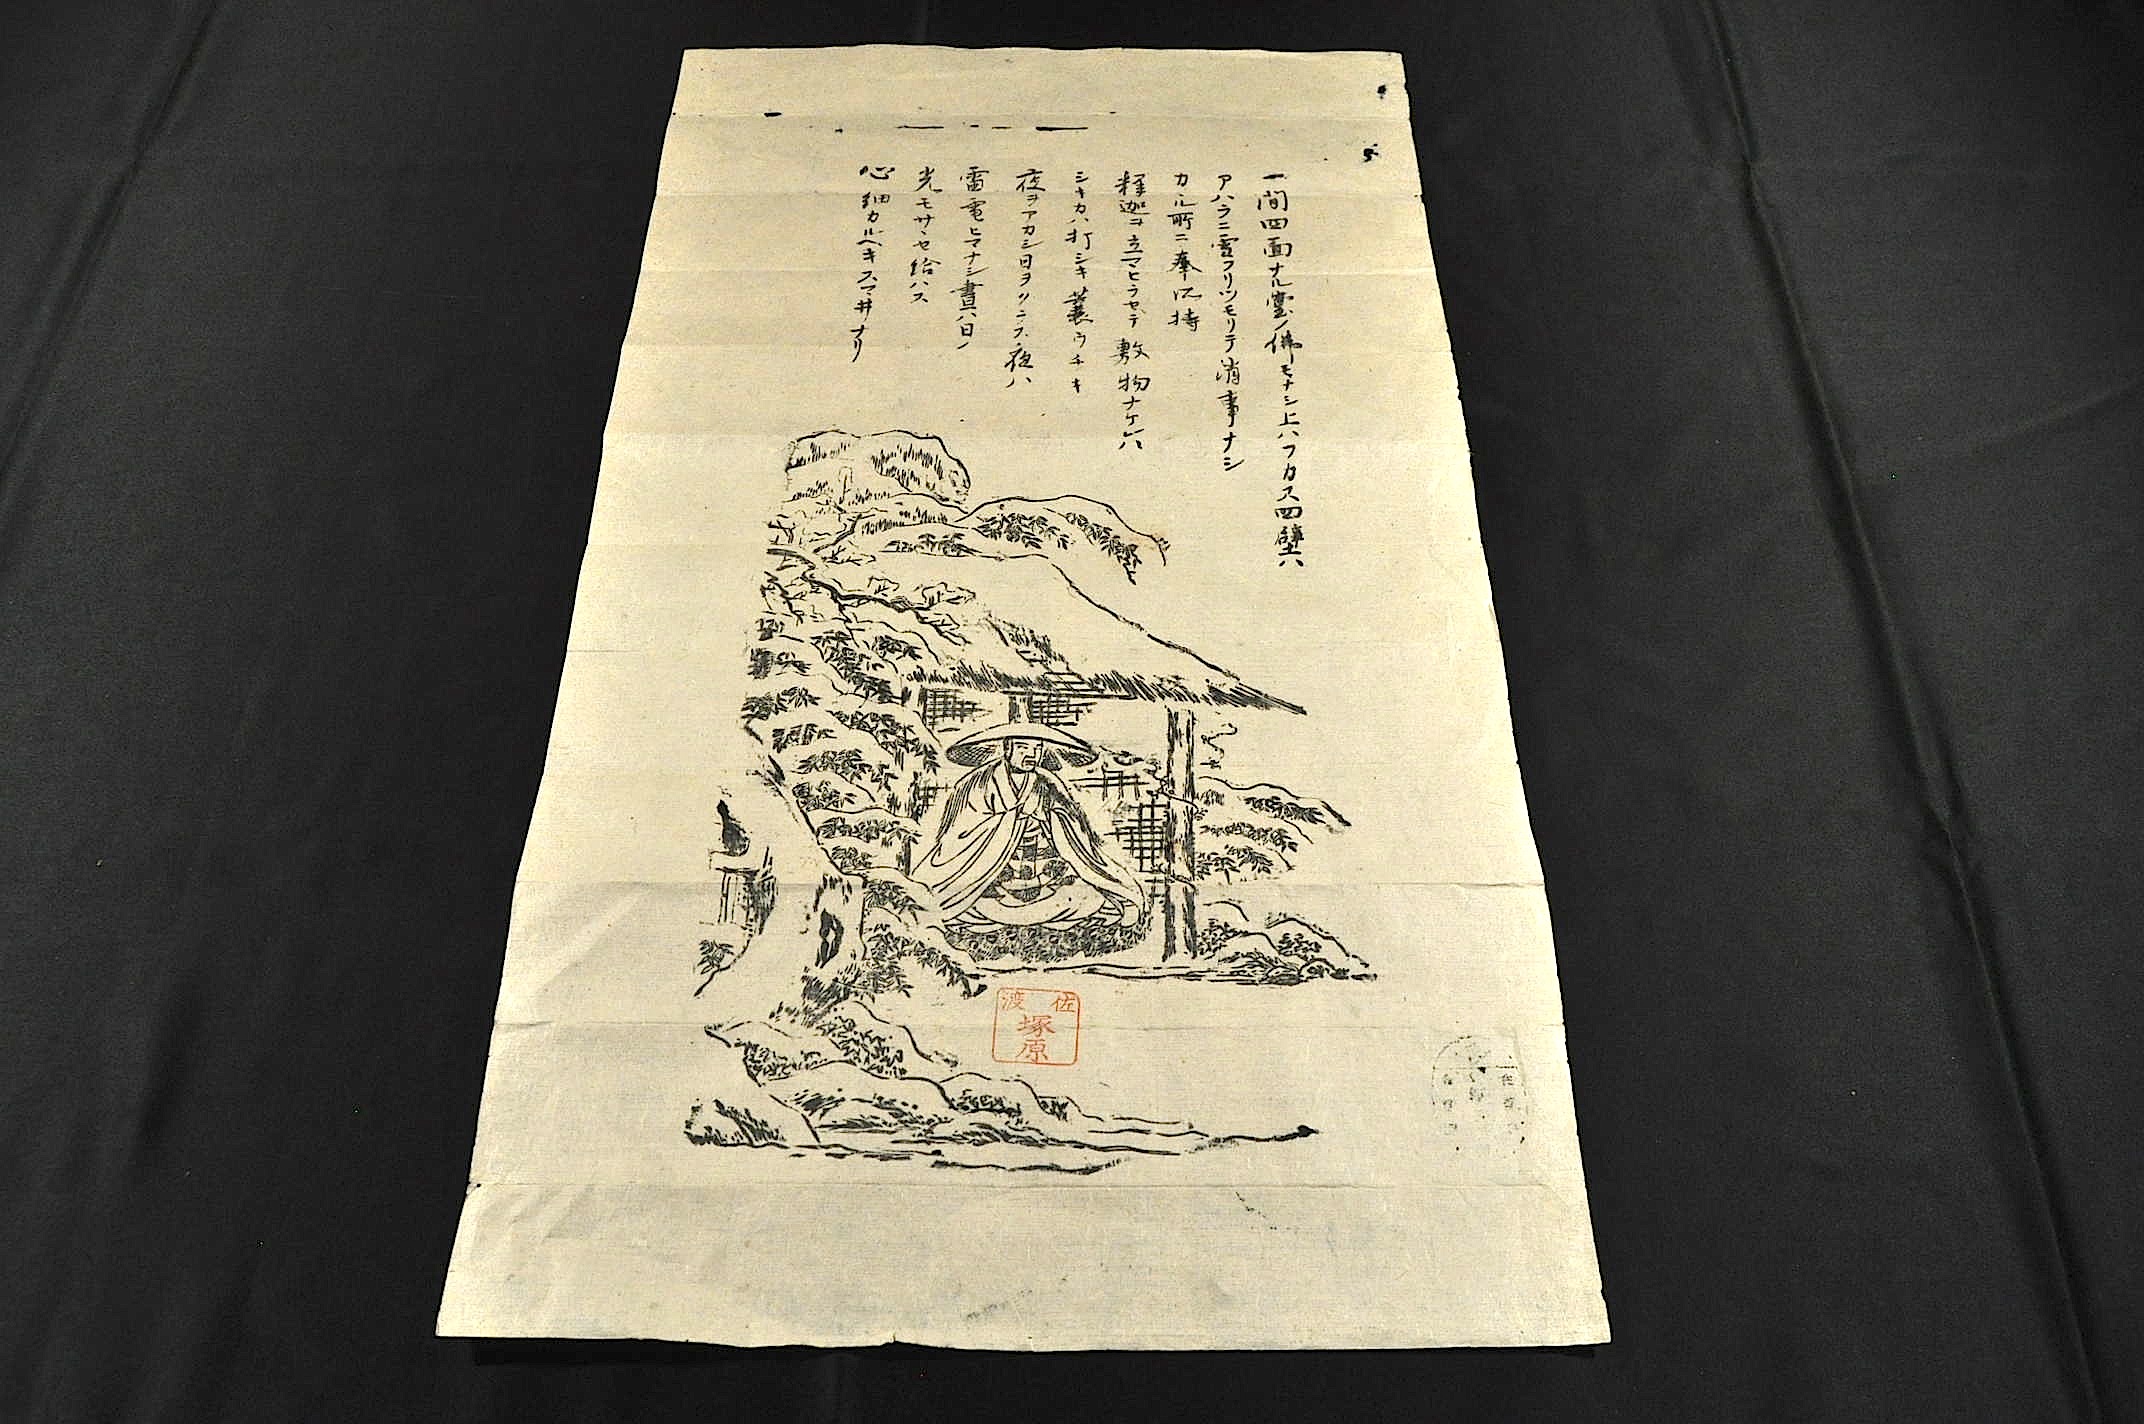 一間四面ナル堂ノ佛モナシ上ハフカス四壁ハ
アハラニ雪フリツモリテ消事ナシ
カル所ニ奉所持
釋迦ヲ立マヒラセテ敷物ナケレハ
シキカハ打シキ蓑ウチキ
夜ヲアカシ日ヲクラス夜ハ
雷電ヒマナシ晝ハ日ノ
光モサヽセ給ハス
心細カルヘキスマ井ナリ
佐渡
塚原